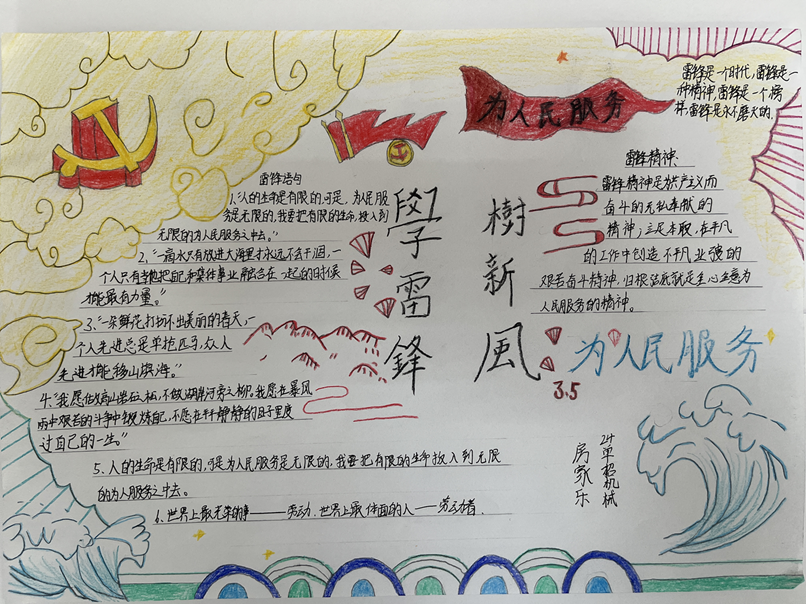 为人民服务
雷锋是一个时代,雷锋是一
种精神,雷锋是一个榜
样,雷锋是永不磨灭的.
雷锋语句
1."人的生命是有限的,可是,为民服
务是无限的,我要把有限的生命,投入到
无限的为人民服务之中去。"
2、"一滴水只有放进大海里才永远不会干涸,一
个人只有当他把自己和集体事业融合在一起的时候
才能最有力量。"
3."一朵鲜花打扮不出美丽的春天,一
个人先进总是单枪匹马,众人
先进才能移山填海。"
4."我愿做高山岩石之松,不做湖岸河旁之柳,我愿在暴风
雨中艰苦的斗争中锻炼自己,不愿在平平静静的日子里度
过自己的一生。"
5、人的生命是有限的,可是为人民服务是无限的,我要把有限的生命投入到无限
的为人服务之中去。
6、世界上最光荣的事——劳动.世界上最体面的人——劳动者.
學雷鋒
樹新風
雷锋精神:
雷锋精神是共产主义而
奋斗的无私奉献的
精神;立足本职,在平凡
的工作中创造不平凡业绩的
艰苦奋斗精神,归根结底就是全心全意为
人民服务的精神。
3.5
为人民服务
24单招机械
房家乐